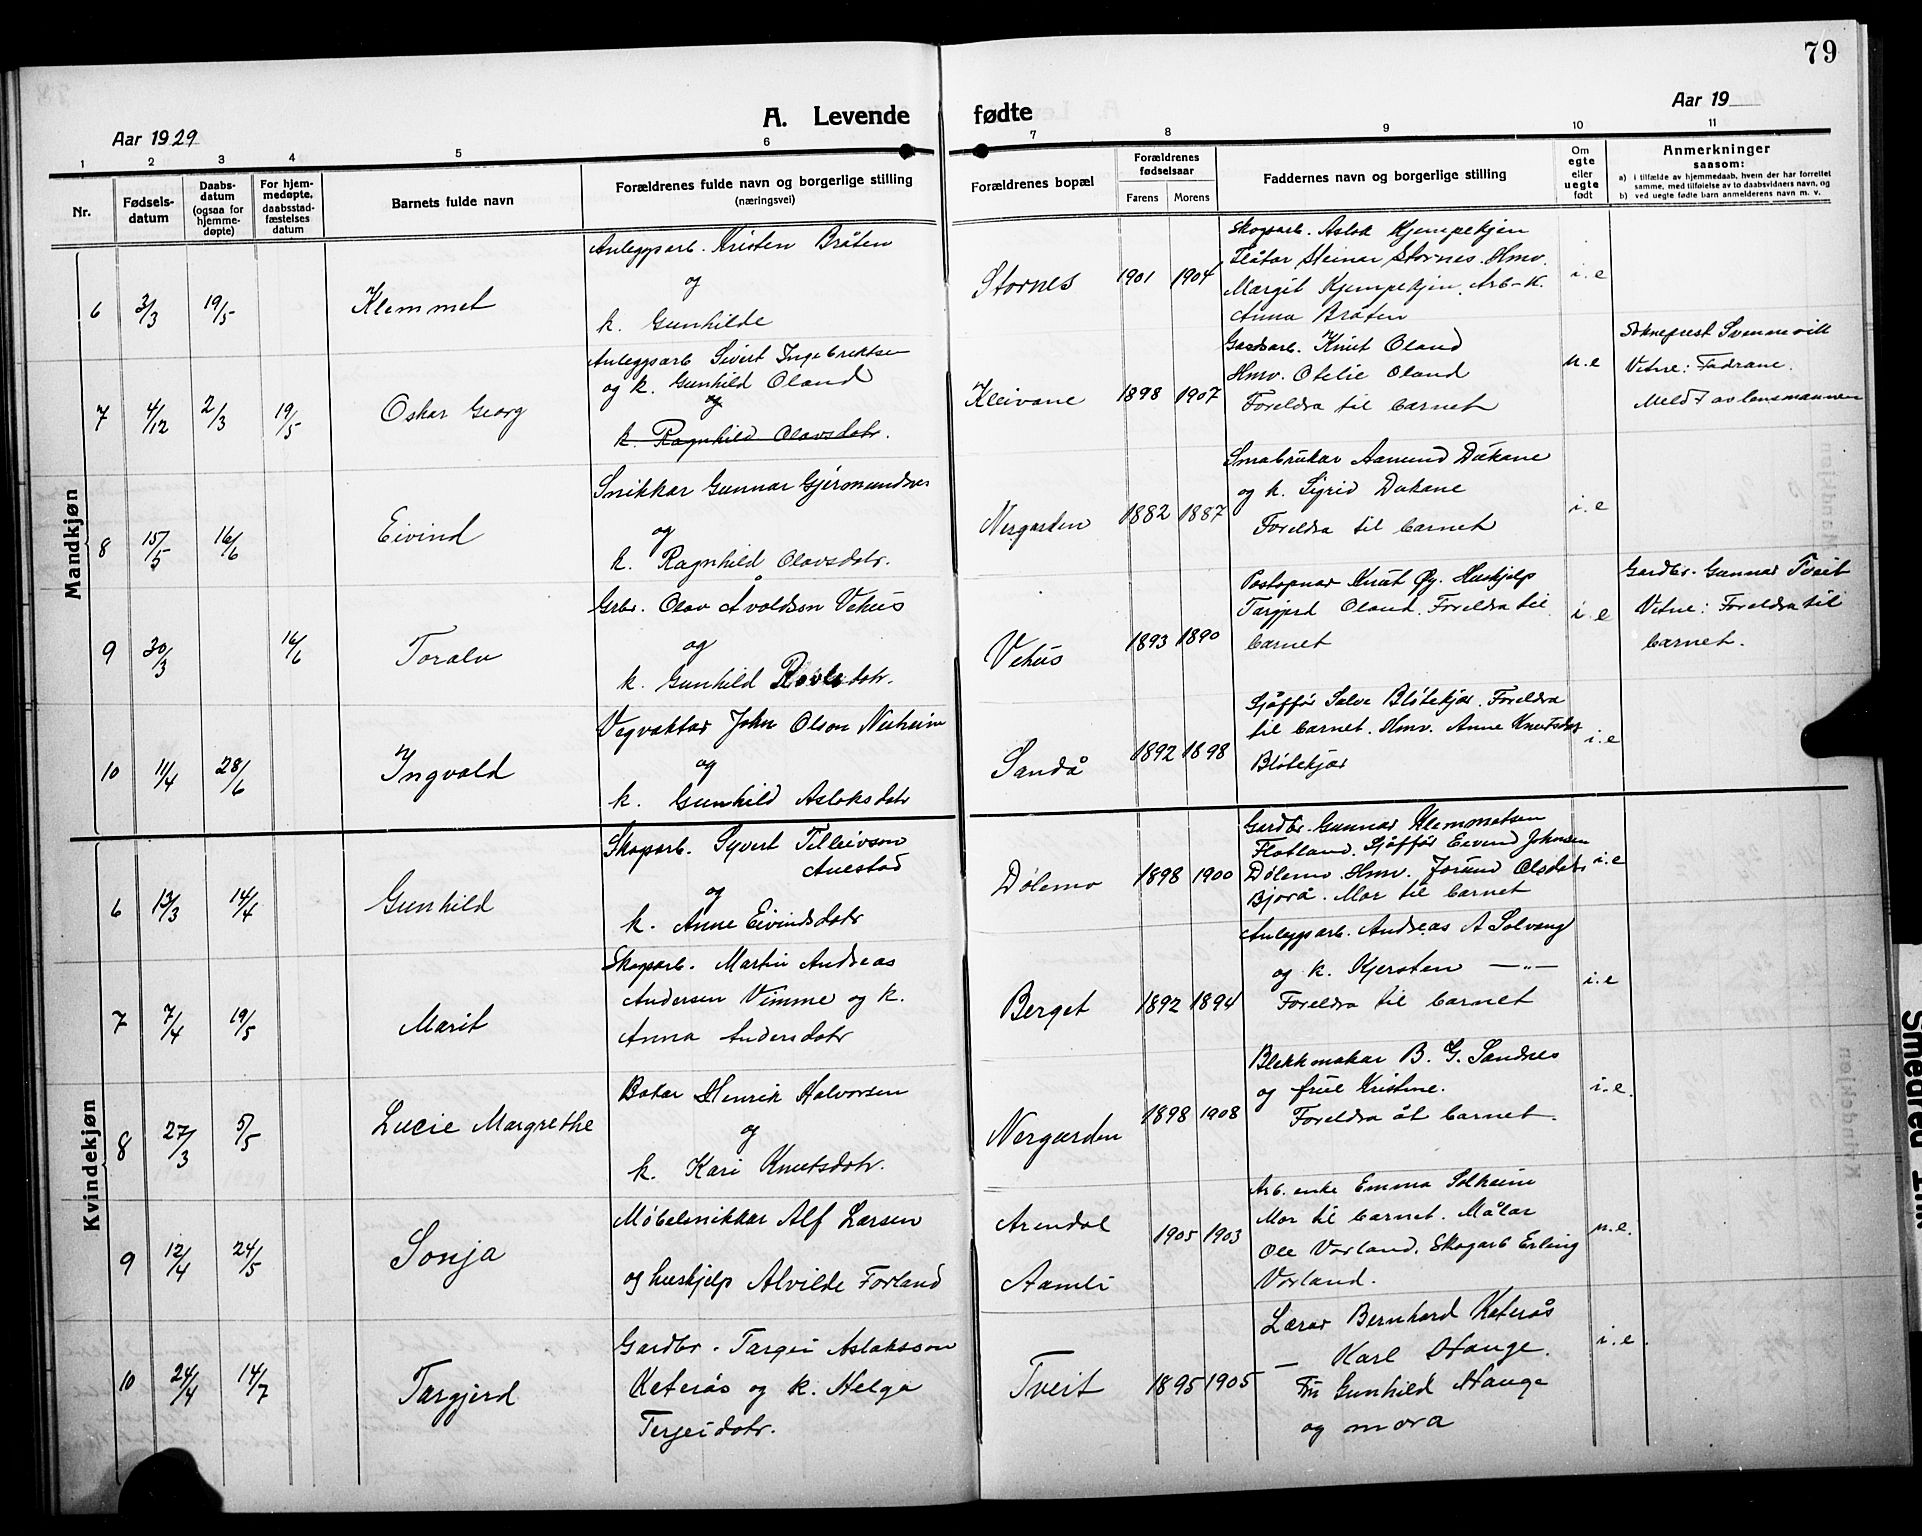 79
Aar 1929
A. Levende fødte
Aar 19
1 2 3 4 5 6 7 8 9 10 11
Nr.
Fødsels-
datum
Daabs-
datum
(ogsaa for
hjemme-
døpte)
For hjem-
medøpte,
daabsstad-
fæstelses
datum
Barnets fulde navn
Forældrenes fulde navn og borgerlige stilling
(næringsvei)
Forældrenes bopæl
Forældrenes
fødselsaar
Farens Morens
Faddernes navn og borgerlige stilling
Om
egte
eller
uegte
født
Anmerkninger
saasom:
a) i tilfælde av hjemmedaab, hvem der har forrettet
samme, med tilføielse av to daabsvidners navn, og
b) ved uegte fødte barn anmelderens navn m. v.
Mandkjøn
6 3/3 19/5 Klemmet
Anleggsarb. Kristen Bråten
og
k. Gunhilde
Stornes 1901 1904
Skogsarb. Aslak Kjempekjen
Fløtar Steinar Stornes. Hmv.
Margit Kjempekjen. Arb-k.
Anna Bråten
i. e
7 4/12 2/3 19/5 Oskar Georg
Anleggsarb Sivert Ingebriktsen
og k. Gunhild Oland
og
k. Ragnhild Olavsdotr.
Kleivane 1898 1907
Gardsarb. Knut Oland
Hmv. Otelie Oland
Foreldra til barnet
u. e
Sokneprest Svennevik
Vitne: Fadrane.
Meldt av lensmannen
8 15/5 16/6 Eivind
Snikkar Gunnar Gjermundsen
og
k. Ragnhild Olavsdotr.
Nergarden 1882 1887
Småbrukar Aamund Dåkane
og k. Sigrid Dåkane
Foreldra til barnet
i. e
9 30/3 16/6 Toralv
Grbr. Olav Åvoldson Vehus
og
k. Gunhild Roolvsdotr.
Vehus 1893 1890
Postopnar Knut Øy. Hushjelp
Targjerd Oland. Foreldra til
barnet
i. e
Gardbr. Gunnar Tveit
Vitne: Foreldra til
barnet.
10 11/4 28/6 Ingvald
Vegvaktar John Olson Neiheim
og
k. Gunhild Aslaksdotr
Sandå 1892 1898
Sjåffør Salve Bløtekjær. Foreldra
til barnet. Hmv. Anne Knutsdotr
Bløtekjær
i. e
Kvindekjøn
6 13/3 14/4 Gunhild
Skogsarb. Syvert Tilleivson
Auestad
og
k. Anne Eivindsdotr
Dølemo 1898 1900
Gardbr. Gunnar Klemmetsen
Flatland. Sjåffør Eivind Johnsen
Dølemo. Hmv. Jorund Olsdotr
Bjorå. Mor til barnet
i. e
7 7/4 19/5 Marit
Skogsarb. Martin Andreas
Andersen Vimme og k.
Anna Andersdotr
Berget 1892 1894
Anleggsarb. Andreas A Solvang
og k. Kjersten — " —
Foreldra til barnet
i. e
8 27/3 5/5 Lucie Margrethe
Bakar Henrik Halvorsen
og
k. Kari Knutsdotr.
Nergarden 1898 1908
Blekkmakar B. G. Sandnes
og frue Kristine.
Foreldra åt barnet.
i. e.
9 12/4 24/5 Sonja
Møbelsnikkar Alf Larsen
og hushjelp Alvilde Forland
Arendal
Aamli
1905 1903
Arb. enke Emma Solheim
Mor til barnet. Målar
Ole Vorland. Skogarb Erling
Vorland.
u. e.
10 24/4 14/7 Targjerd
Gardbr. Targei Aslaksson
Keterås og k. Helga
Terjeidotr.
Tveit 1895 1905
Lærar Bernhard Keterås
— Karl Hauge.
Fru Gunhild Hauge
og mora
i. e.